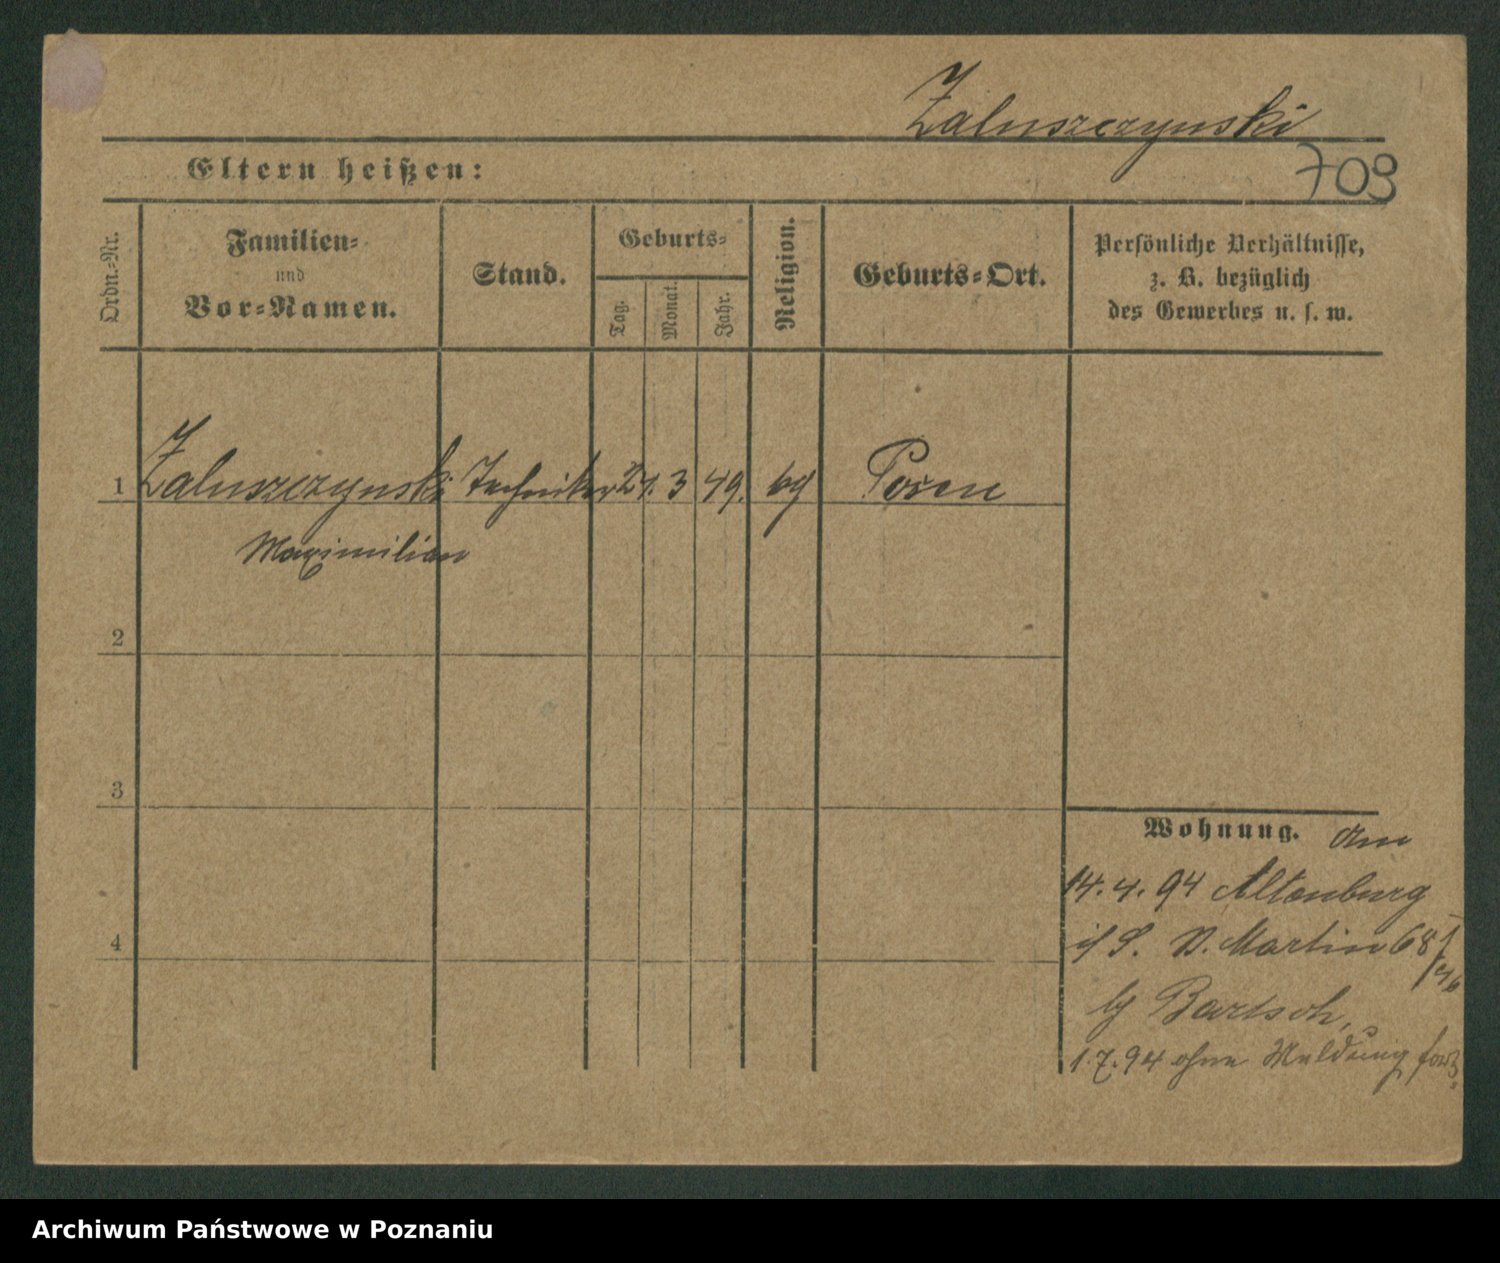 Zaluszczynski
709
Eltern heißen:
Ordn.-Nr.
Familien-
und
Vor-Namen.
Stand.
Geburts-
Tag.
Monat.
Jahr.
Religion.
Geburts-Ort.
Persönliche Verhältnisse,
z. B. bezüglich
des Gewerbes u. s. w.
1 Zaluszczynski Techniker 21. 3 49. kg Posen
Maximilian
2
3
4
Wohnung. am
14. 4. 94 Altenburg
Martin 68
by Bartsch,
1. 7. 94 ohne Meldung fort.
Archiwum Państwowe w Poznaniu